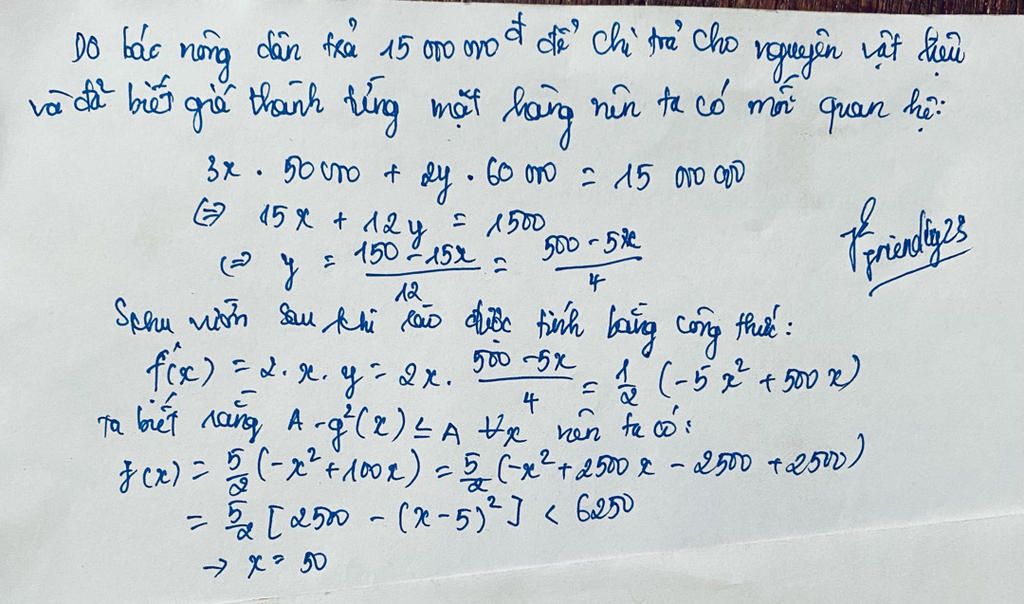 Do bác nông dân trả 15 000 000đ để chi trả cho nguyên vật liệu
và đã biết giá thành từng mặt hàng nên ta có mối quan hệ:
3x . 50 000 + 2y . 60 000 = 15 000 000
⇔ 15x + 12y = 1500
⇔ y = \frac{150 - 15x}{12} = \frac{500 - 5x}{4}
Friendly23
vườn sau khi rào được tính bằng công thức:
f(x) = 2.x.y = 2x. \frac{500 - 5x}{4} = \frac{1}{2} (-5x² + 500x)
Ta biết rằng A - g²(x) ≤ A ∀x nên ta có:
f(x) = \frac{5}{2} (-x² + 100x) = \frac{5}{2} (-x² + 2500x - 2500 + 2500)
= \frac{5}{2} [2500 - (x-5)²] < 6250
→ x = 50